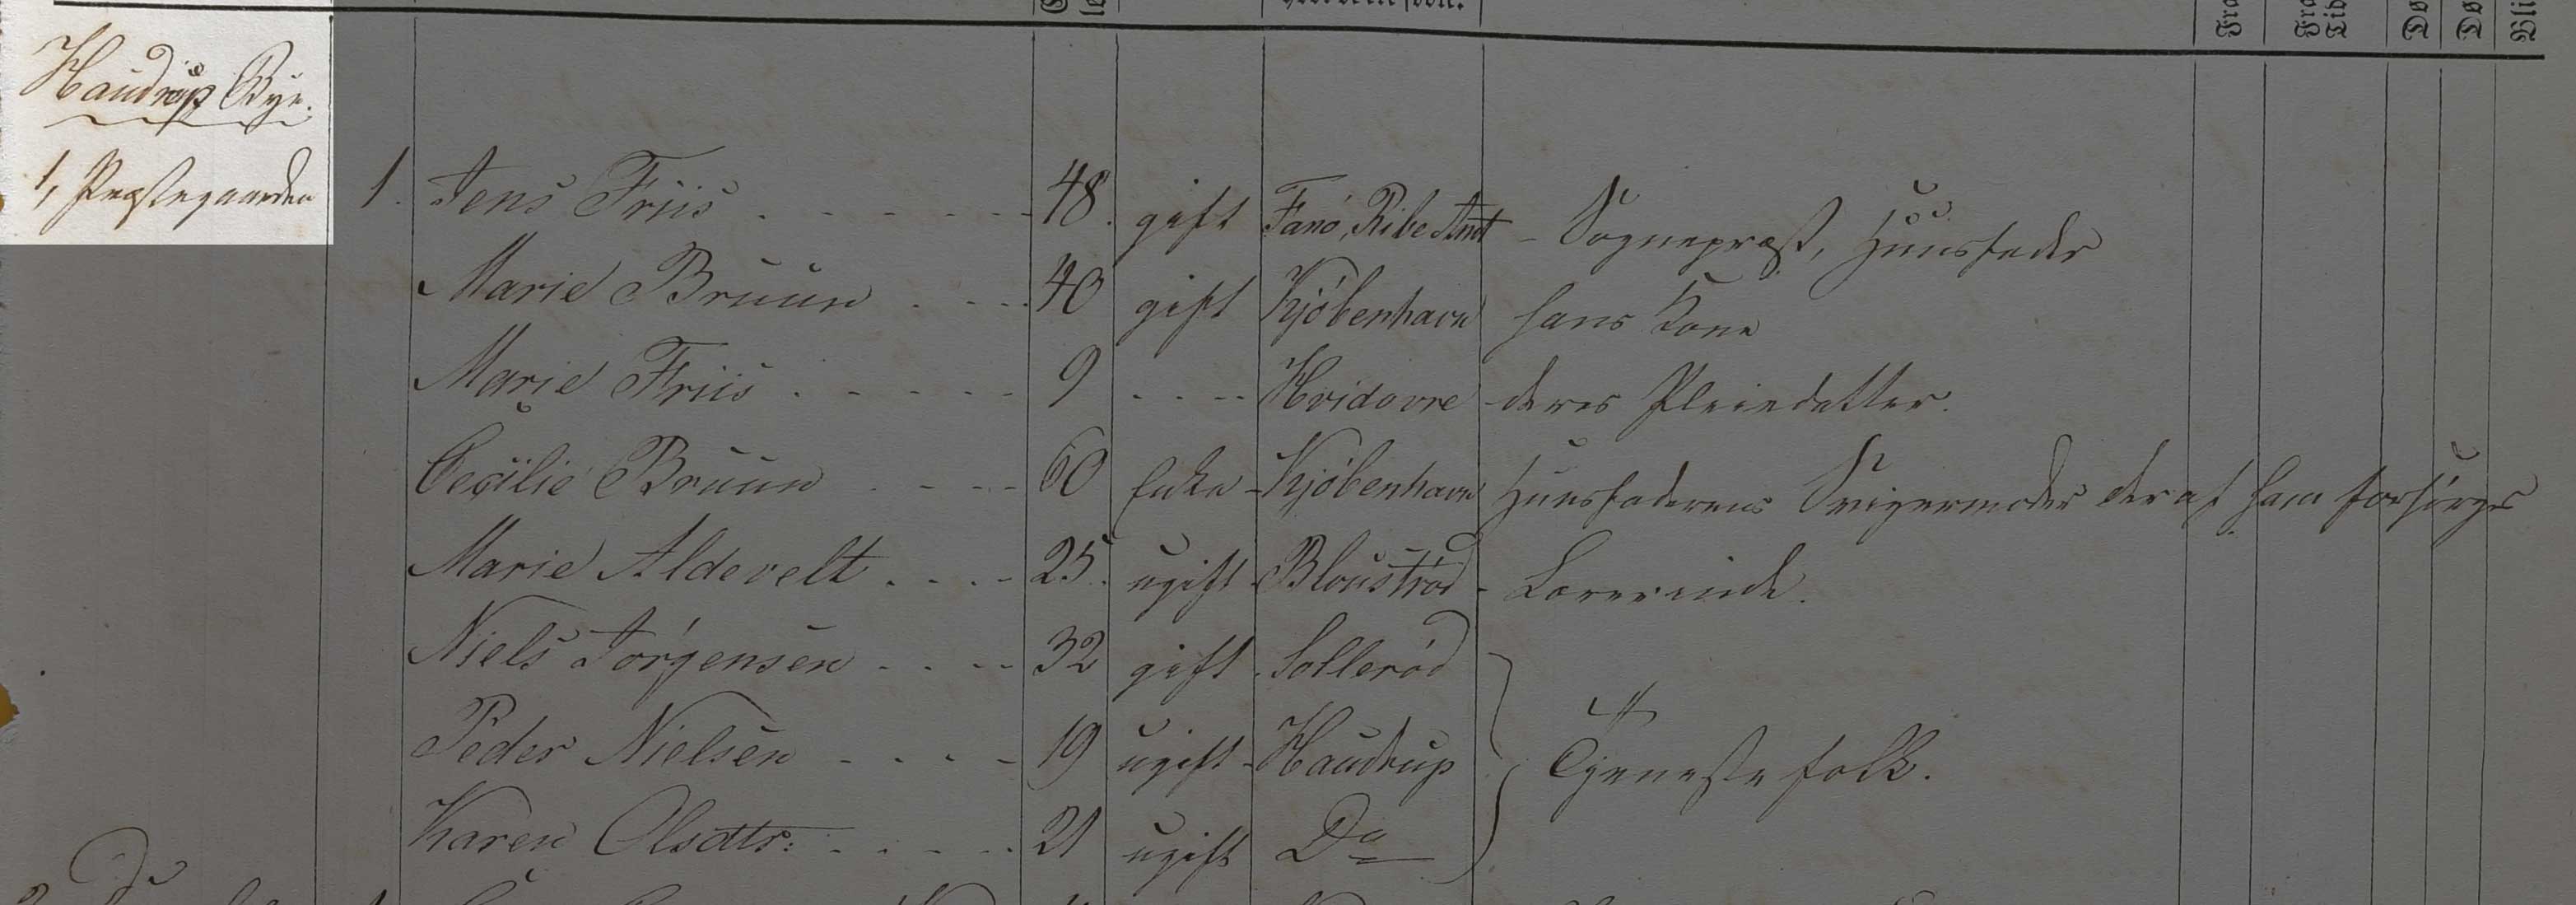 Haudrup Bye.
1, Præstegaarden
1. Jens Friis 48. gift Fanø, Ribe Amt - Sognepræst, Huusfader
Marie Bruun 40 gift Kjøbenhavn hans Kone
Marie Friis 9 Hvidovre - deres Pleiedatter.
Cecilie Bruun 60 Enke - Kjøbenhavn Huusfaderens Svigermoder der af ham forsørges
Marie Aldevelt 25. ugift - Bloustrød - Lærerinde.
Niels Jørgensen 32 gift - Søllerød
Peder Nielsen 19 ugift - Haudrup Tjenestefolk.
Karen Olsdtr: 21 ugift Do